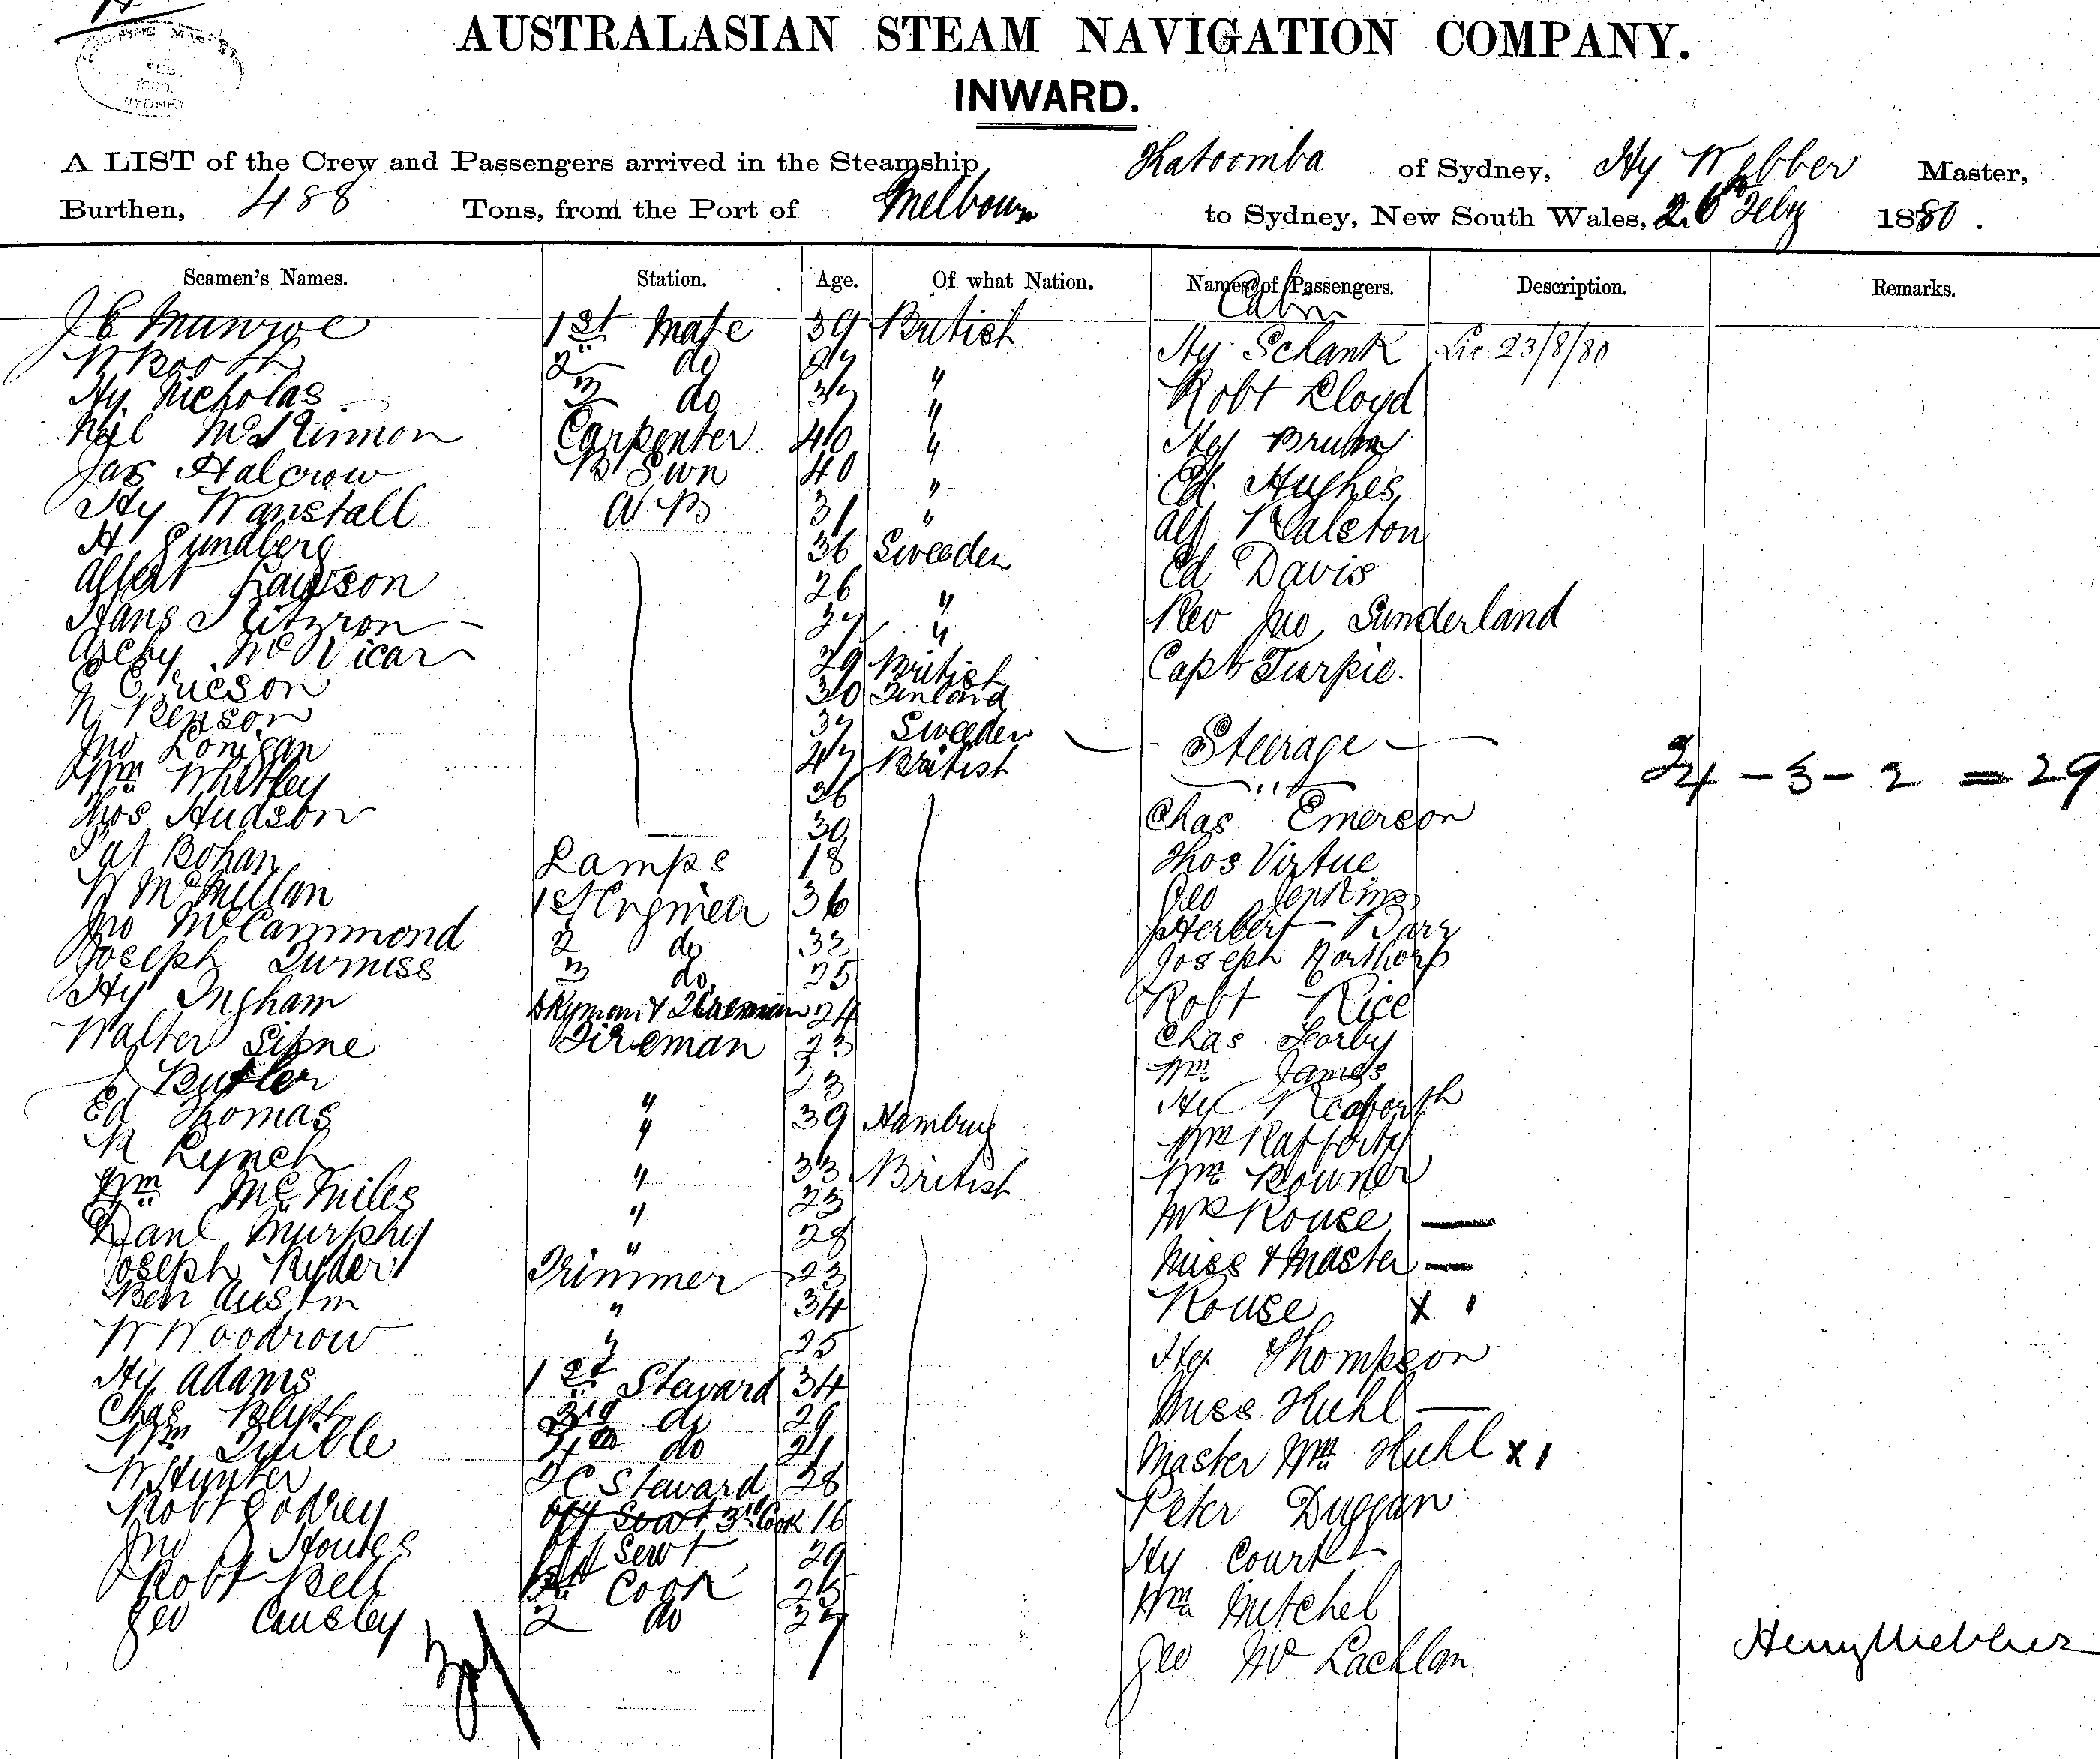 AUSTRALASIAN STEAM NAVIGATION COMPANY.
INWARD.
A LIST of the Crew and Passengers arrived in the Steamship Katoomba of Sydney, Hy Webber Master,
Burthen, 488 Tons, from the Port of Melbourn to Sydney, New South Wales, 26th Feby 1880.
Seamen's Names. Station. Age. Of what Nation. Names of Passengers. Description. Remarks.
Cabin
J C Munroe 1st Mate 39 British Hy Schank Lie 23/8/80
W Booth 2 do 27 " Robt Lloyd
Hy Nicholas 3 do 37 " Hy Bruhn
Neil McKinnon Carpenter 40 " Ed. Hughes
Jas Halcrow B Swn 40 " Alf Ralston
Hy Wanstall A B 31 " Ed Davis
H Lundberg 36 Sweeden Rev Jno Sunderland
Alfert Lawson 26 " Capt Turpie.
Hans 37 "
Archy McVicar 29 British
G Ericson 30 Finland
N Benson 37 Sweeden Steerage
Jno Lonigan 47 British
Wm Whitley 36 Chas Emerson 34 - 3 - 2 = 29
Thos Hudson 30 Thos Virtue
Pat Bohan Lamps 18 Geo Jenkins
W McMillan 1st Engineer 36 Herbert Barz
Jno McCammond 2 do 32 Joseph Northorp
Joseph 3 do 25 Robt Rice
Hy Ingham Dkyman & Storeman 24 Chas Lorby
Walter Sisne Fireman 23 Wm James
J Butler " 23 Hy
Ed Thomas " 39 Hamburg Wm Rafforty
R Lynch " 33 British Wm Bowner
Wm McMiles " 23 Mrs Rouse
Danl Murphy " 28 Miss & Master
Joseph Ryder Trimmer 23 Rouse X
Ben Austin " 34 Hy Thompson
W Woodrow " 25 Miss Huhl
Hy Adams 1st Steward 34 Master Wm Huhl X
Chas Blyth 3rd do 29 Peter Duggan
Wm Quible 4th do 21 Hy Court
W Hunter F C Steward 28 Wm Mitchel
Robt Godrey Off Servt 3rd Cook 16 Geo McLachlan
Jno Houtes Off Servt 29
Robt Bell 1st Cook 25
Geo Causley 2 do 37
Henry Webber